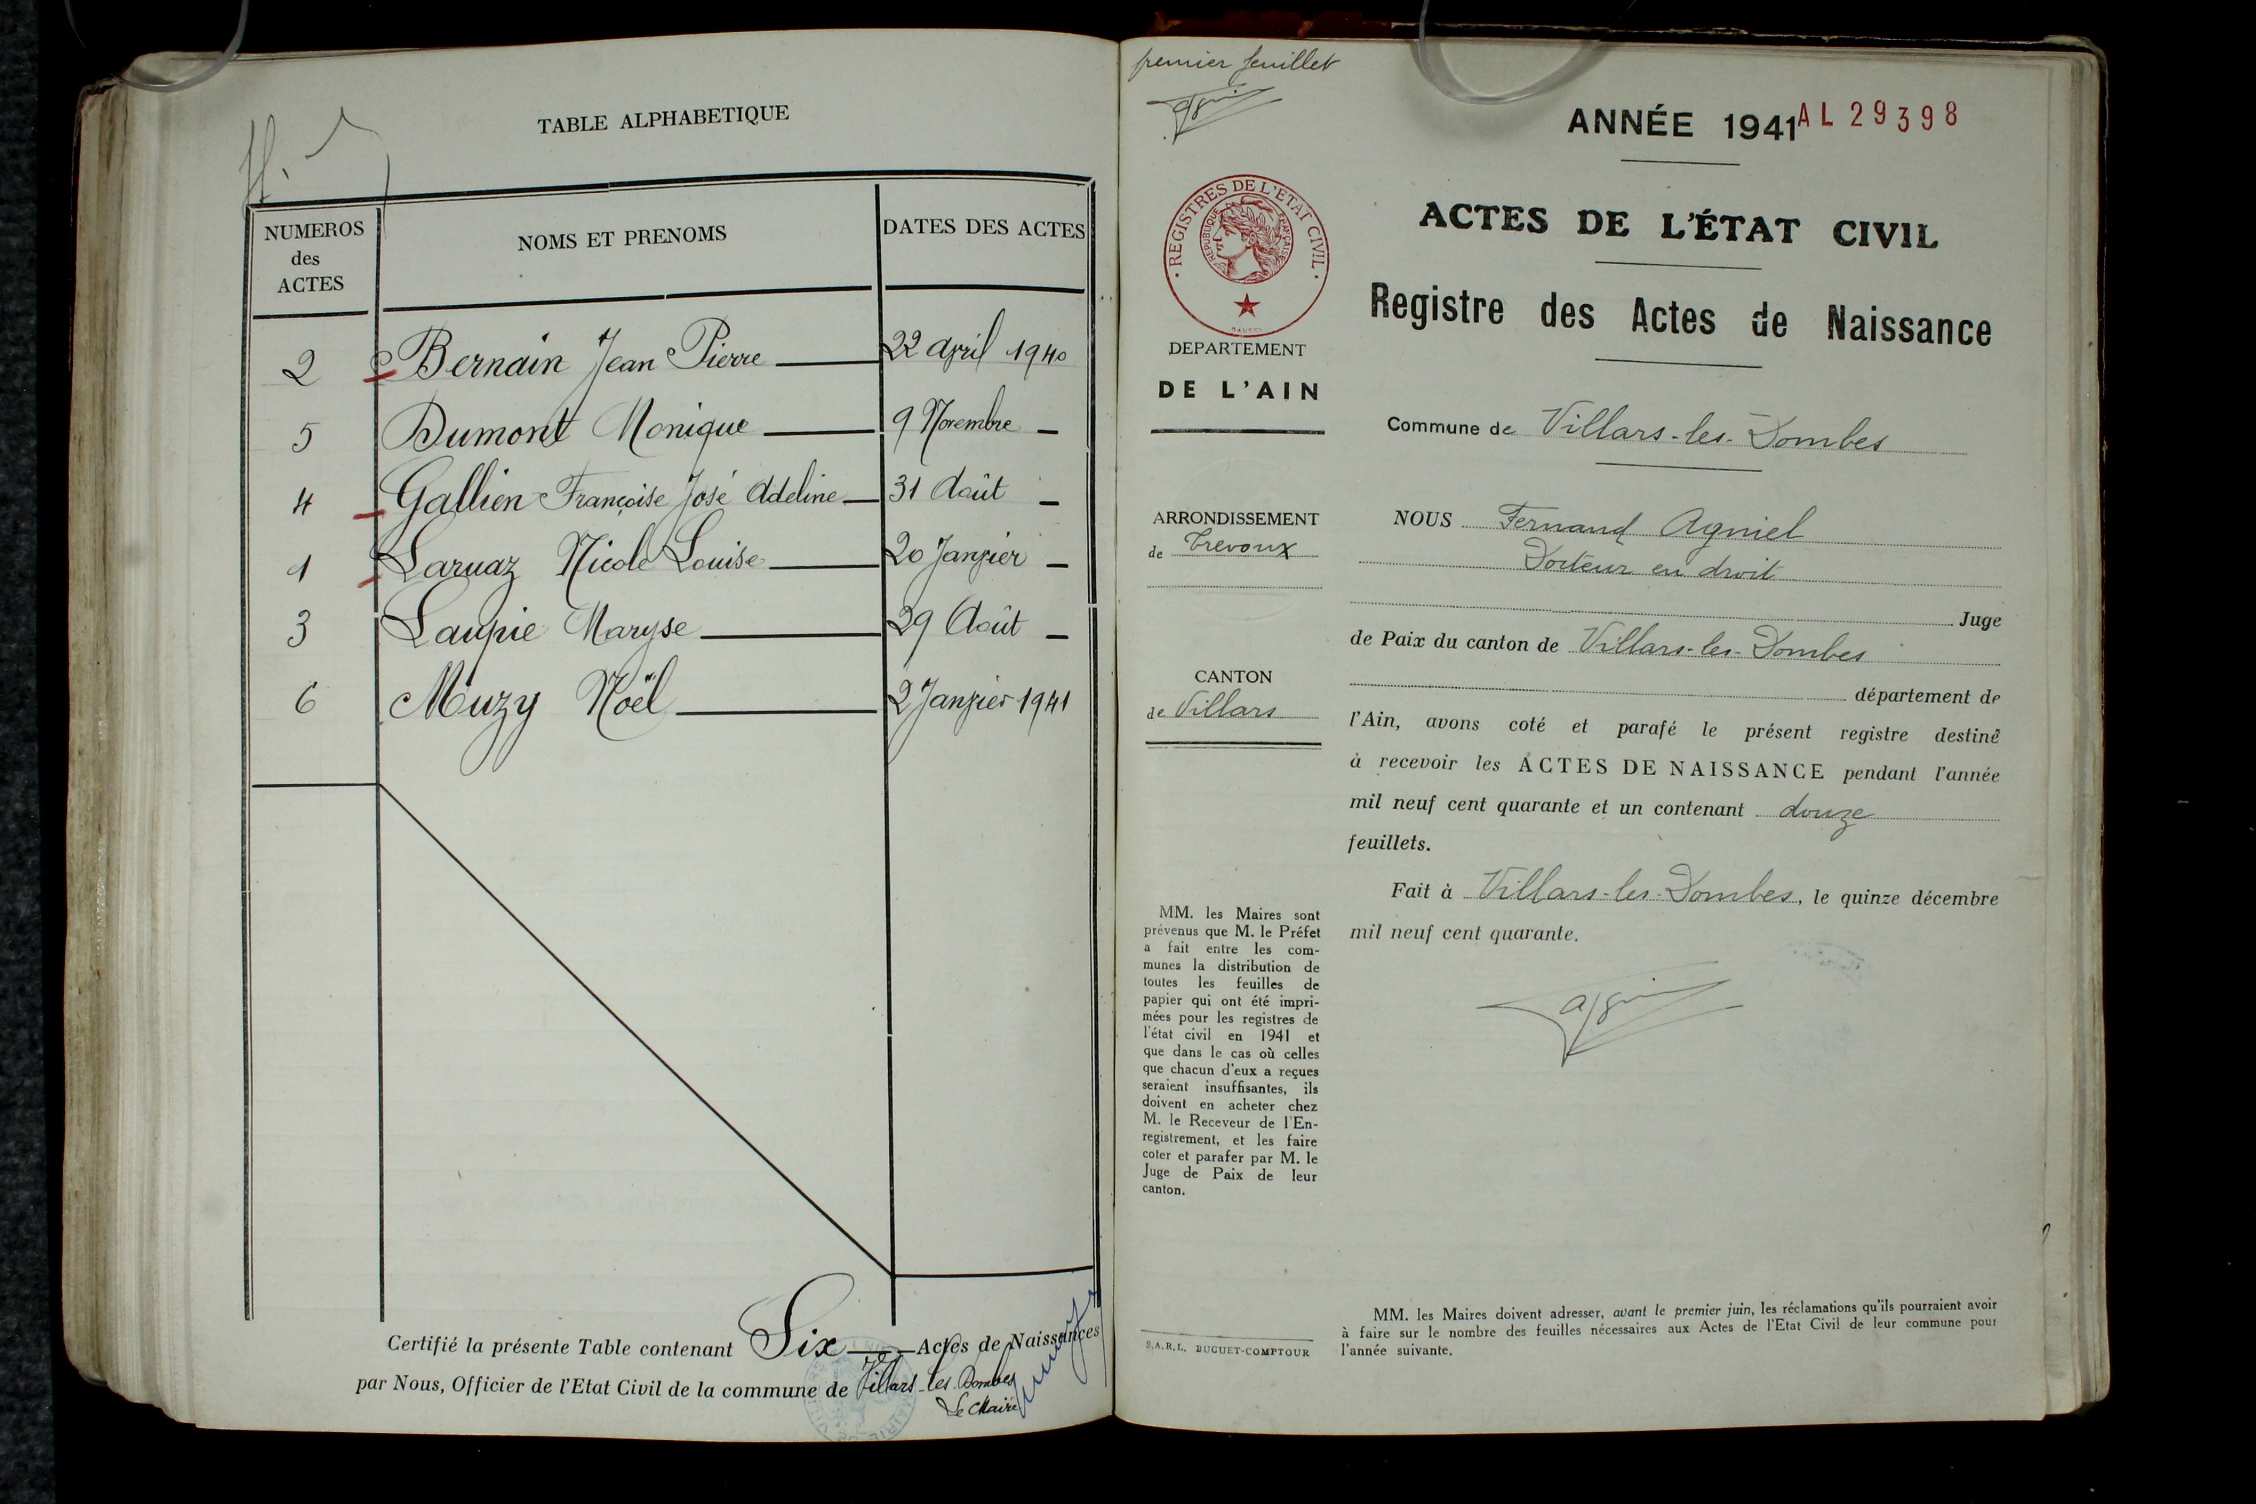 TABLE ALPHABETIQUE
NUMEROS
des
ACTES
NOMS ET PRENOMS
DATES DES ACTES
2 Bernain Jean Pierre 22 april 1940
5 Dumont Monique 9 Novembre
4 Gallien Françoise José Adeline 31 Août
1 Laruaz Nicole Louise 20 Janvier
3 Laupie Maryse 29 Août
6 Muzy Noël 2 Janvier 1941
Certifié la présente Table contenant Six Actes de Naissances
par Nous, Officier de l'Etat Civil de la commune de Villars-les-Dombes
Le Maire
premier feuillet
REGISTRES DE L'ETAT CIVIL
REPUBLIQUE FRANÇAISE
DEPARTEMENT
DE L'AIN
ARRONDISSEMENT
de Trevoux
CANTON
de Villars
MM. les Maires sont
prévenus que M. le Préfet
a fait entre les com-
munes la distribution de
toutes les feuilles de
papier qui ont été impri-
mées pour les registres de
l'état civil en 1941 et
que dans le cas où celles
que chacun d'eux a reçues
seraient insuffisantes, ils
doivent en acheter chez
M. le Receveur de l'En-
registrement, et les faire
coter et parafer par M. le
Juge de Paix de leur
canton.
S.A.R.L. BUGUET-COMPTOUR
ANNÉE 1941 AL 29398
ACTES DE L'ÉTAT CIVIL
Registre des Actes de Naissance
Commune de Villars-les-Dombes
NOUS Fernand Agniel
Docteur en droit
Juge
de Paix du canton de Villars-les-Dombes
département de
l'Ain, avons coté et parafé le présent registre destiné
à recevoir les ACTES DE NAISSANCE pendant l'année
mil neuf cent quarante et un contenant douze
feuillets.
Fait à Villars-les-Dombes, le quinze décembre
mil neuf cent quarante.
MM. les Maires doivent adresser, avant le premier juin, les réclamations qu'ils pourraient avoir
à faire sur le nombre des feuilles nécessaires aux Actes de l'Etat Civil de leur commune pour
l'année suivante.